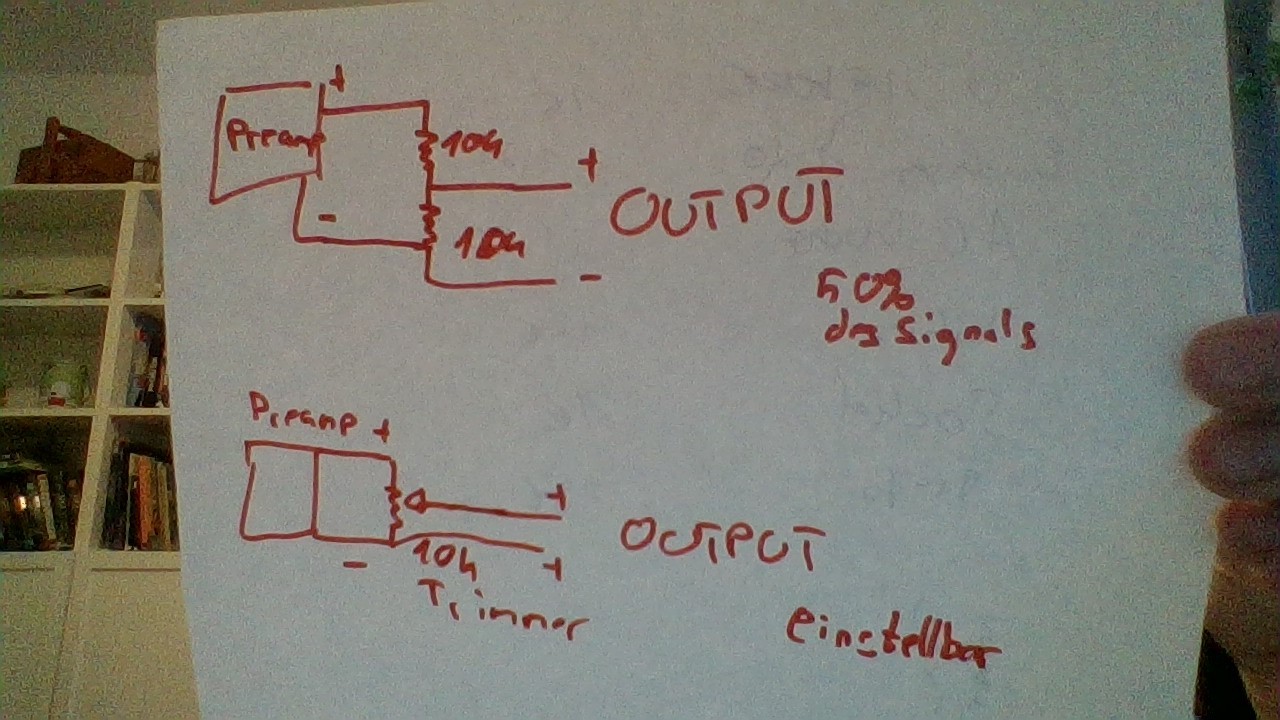 +
Preamp
10k
+
OUTPUT
-
10k
-
50%
des Signals
Preamp +
+
OUTPUT
-
10k
+
Trimmer
einstellbar